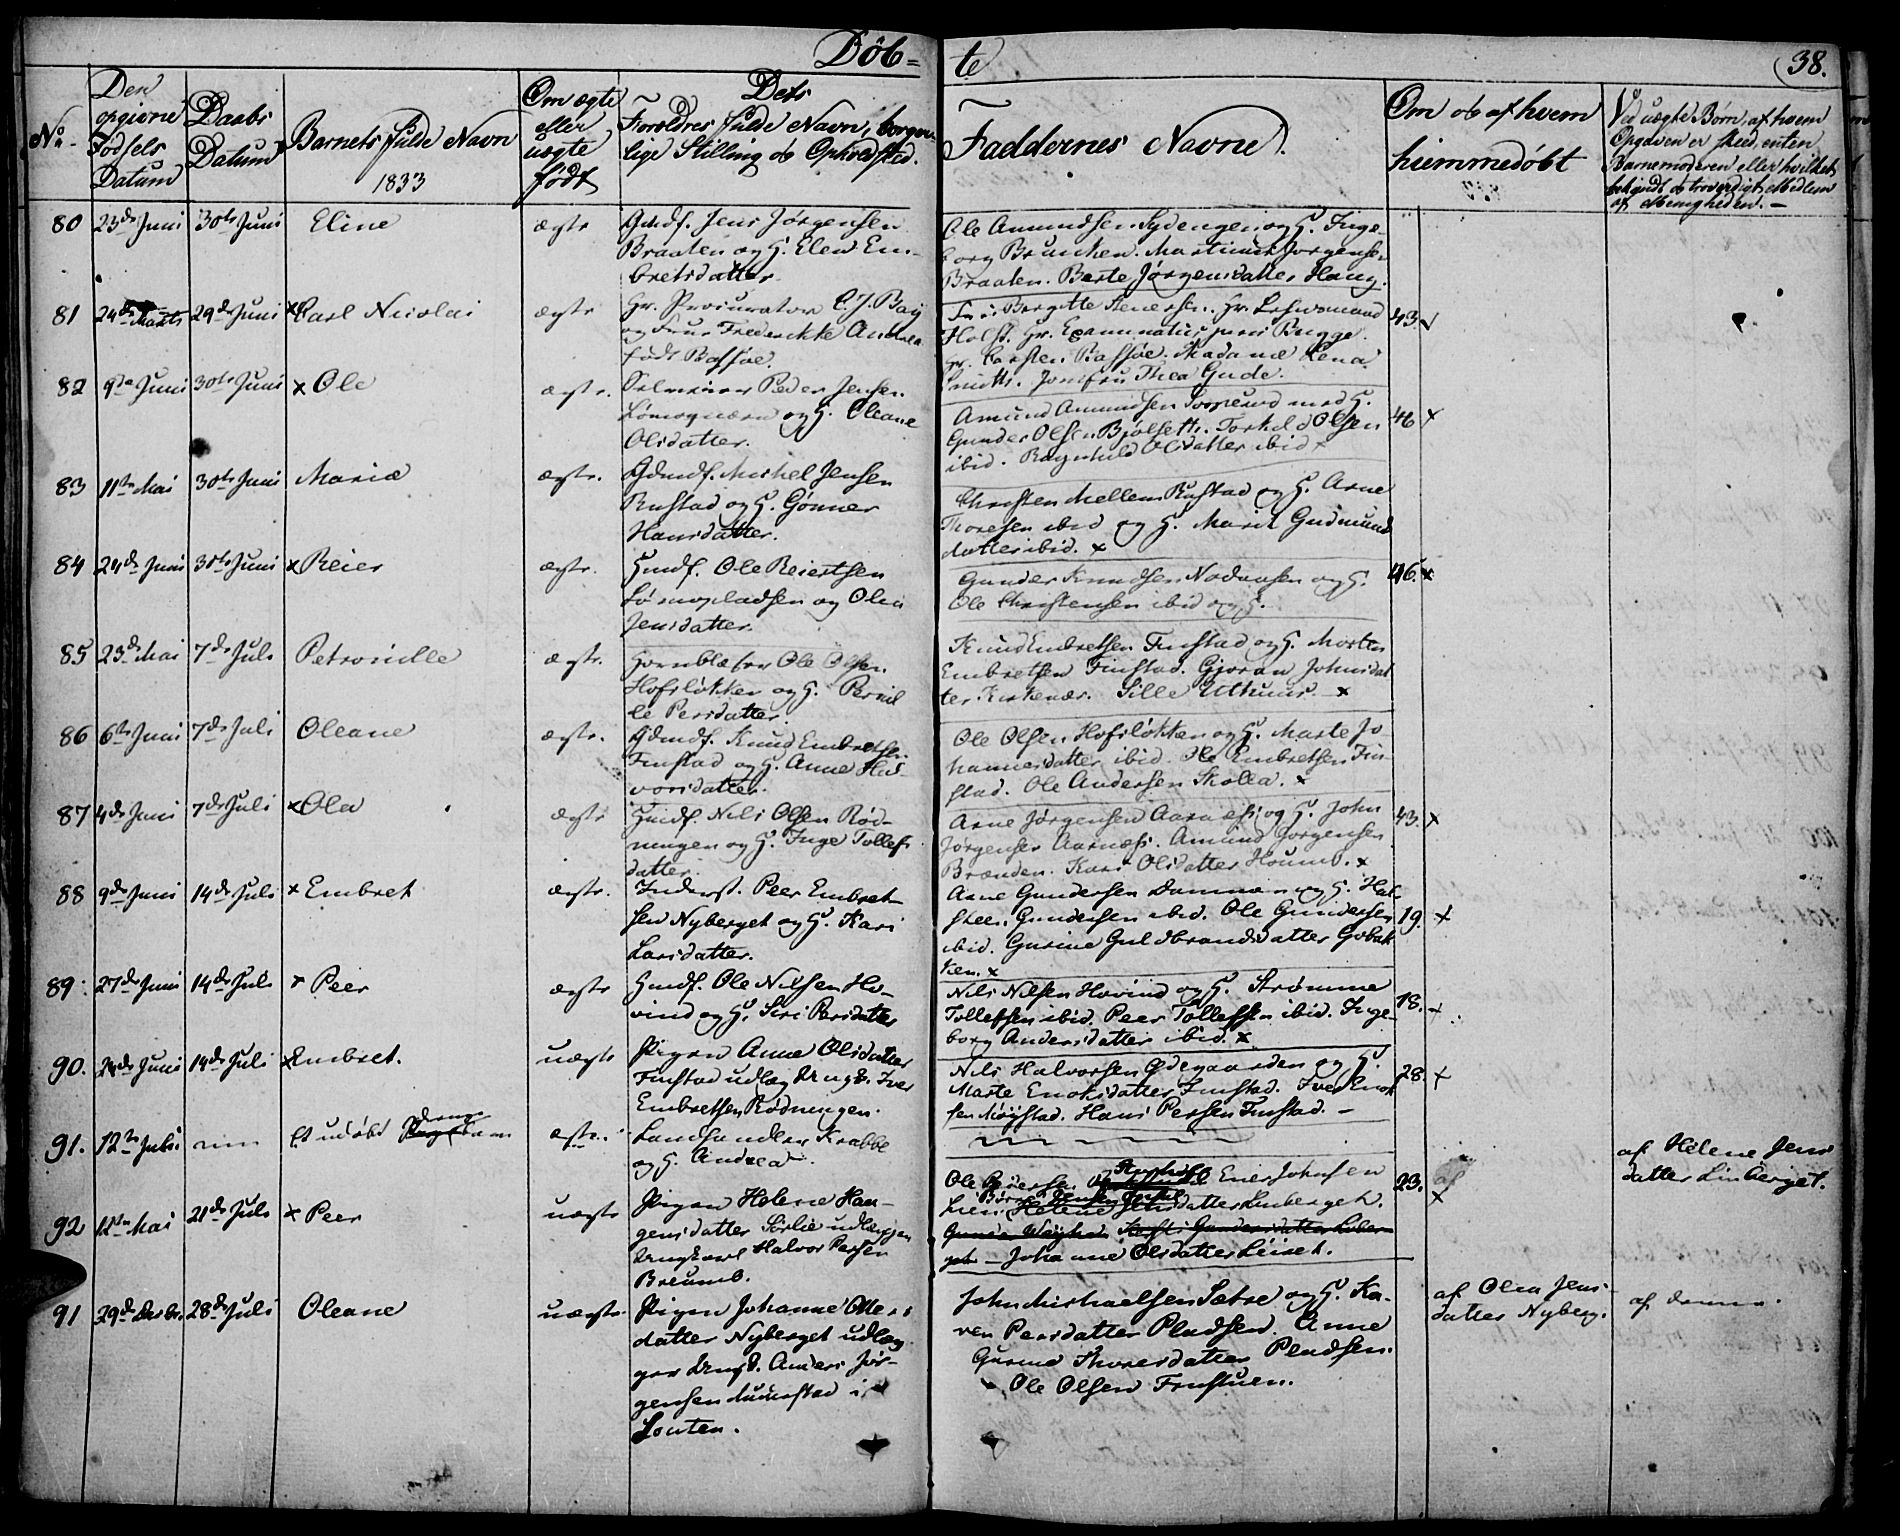 Döb=
te
38.
No.
Den opgivne Fødsels Datum
Daabs Datum
Barnets fulde Navn
1833
Om ægte eller uægte født
Dets Forældres fulde Navn, borgerlige Stilling og Opholdsted.
Faddernes Navne.
Om og af hvem hiemmedøbt
Ved uægte Børn, af hvem Opgaven er skeed, enten Barnemoderen eller hvilket bekjendt og troværdigt Medlem af Menigheden. –
80 23de Juni 30te Juni Eline ægte
Gdmd. Jens Jørgensen
Braaten og H. Elen Em-
bretsdatter.
Ole Amundsen Sydengen og H. Inge-
borg Brunken. Martinus Jørgensen
Braaten. Berte Jørgensdatter Haug.
81 24de Marts 29de Juni × Carl Nicolai ægte
Hr. Procurator C. J. Bay
og Frue Frederikke Andrea
født Bassøe.
Frue Bergitte Stenersen. Hr. Lehnsmand
Holst. Hr. Examinatus juris Bugge.
Hr. Carsten Bassøe. Madame Lena
Smith. Jomfru Thea Gude.
43.
82 9de Juni 30te Juni × Ole ægte.
Peder Jensen
og H. Oleane
Olsdatter.
Amund Amundsen med H.
Gunder Olsen Bjølseth. Torkild Olsen
ibid. Ragnhild Olsdatter ibid.
46 ×
83 11te Mai 30te Juni Maria ægte.
Gdmd. Mickel Jensen
Rustad og H. Gønner
Hansdatter.
Christen Mellem Rustad og H. Arne
Thoresen ibid og H. Marit Gudmunds
datter ibid. ×
84 24de Juni 30te Juni × Reier ægte.
Hmd. Ole Reiertsen
og Olea
Jensdatter.
Gunder Knudsen og H.
Ole Christensen ibid og H.
46. ×
85 23de Mai 7de Juli Petronille ægte.
Hornblæser Ole Olsen
Hofsløkken og H. Pernil
le Persdatter.
Knud Embretsen Finstad og H. Morten
Embretsen Finstad. Gjøran Johnsdat
ter Kirkenær. Sille Uthuus. ×
86 6te Juni 7de Juli Oleane ægte.
Gdmd. Knud Embretsen
Finstad og H. Anne Hal-
vorsdatter.
Ole Olsen Hofsløkken og H. Marte Jo
hannesdatter ibid. Ole Embretsen Fin-
stad. Ole Andersen Skolla. ×
87 4de Juni 7de Juli × Ole ægte
Hmd. Nils Olsen Rød-
ningen og H. Inge Tollefs
datter.
Arne Jørgensen Aarnæs og H. John
Jørgensen Aarnæs. Amund Jørgensen
Brænden. Kari Olsdatter. ×
43. ×
88 9de Juni 14de Juli × Embret ægte.
Inderst. Peer Embret-
sen Nyberget og H. Kari
Larsdatter.
Arne Gundersen og H. Hal-
steen Gundersen ibid. Ole Gundersen
ibid. Gurine Guldbrandsdatter Gobak
ken. ×
19. ×
89. 27de Juni 14de Juli × Peer ægte
Hmd. Ole Nilsen Ho-
vind og H. Siri Persdatter
Nils Nilsen Hovind og H. Strømme
Tollefsen ibid. Peer Tollefsen ibid. Inge-
borg Andersdatter ibid. ×
18.
90. 24de Juni 14de Juli × Embret. uægte
Pigen Anne Olsdatter
Finstad udlæg Ungk. Iver
Embretsen Rødningen.
Nils Halvorsen Ødegaarden og H.
Marte Enoksdatter Finstad. Iver Enok
sen Møystad. Hans Persen Finstad. –
28. ×
91. 12te Juli Et udøbt Drenge ægte
Landhandler Krabbe
og H. Andrea.
92 12te Mai 21de Juli × Peer uægte
Pigen Helene Hau-
gensdatter Sørlie udlægger
Ungkarl Halvor Persen
Breumb.
Ole Einer Johnsen
Lien. Helene Jensdatter Linberget.
Johanne Olsdatter
23. ×
af Helene Jens
datter Linberget.
91 29de Decbr. 28de Juli Oleane uægte
Pigen Johanne Olles
datter Nyberget udlæg-
ger Ungk. Anders Jør-
gensen i
Løuten.
John Michaelsen Sætre og H. Ka-
ren Persdatter Pladsen. Anne
Gurine Thoresdatter Pladsen.
Ole Olsen Framstuen.
af Olea Jens-
datter Nyberg.
af denne.